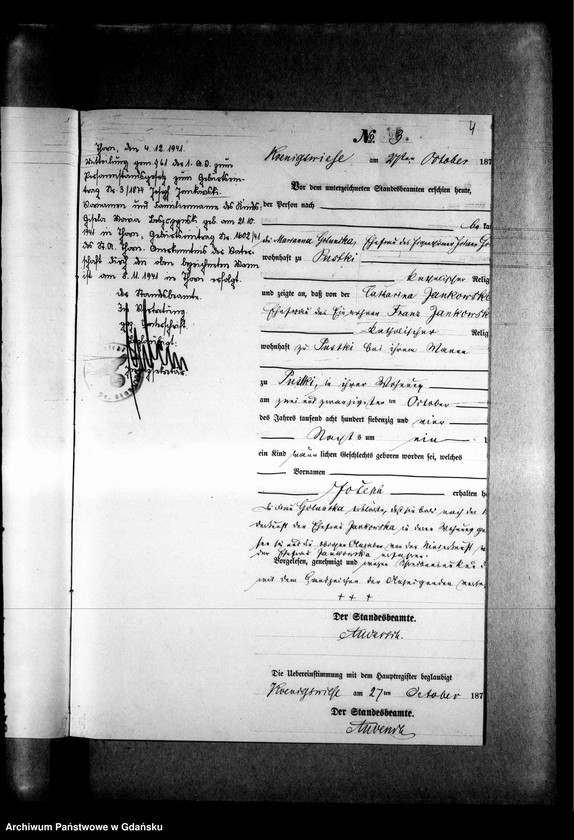 4
Thorn, den 4.12.1941.
Mitteilung gem. § 61 der 1. A.V. zum
Personenstandsgesetz zum Geburtsein-
trag Nr. 3/1874 Josef Jankowski.
Vornamen und Familienname des Kindes
Gisela Maria geb. am 21.10.
1941 in Thorn, Geburtseintrag Nr. 1402/41
des St.A. Thorn. Anerkenntnis der Vater-
schaft durch den oben bezeichneten Mann
ist am 8.11.1941 in Thorn erfolgt.
Der Standesbeamte.
In Vertretung
No. 3.
Koenigswiese am 27ten October 187
Vor dem unterzeichneten Standesbeamten erschien heute,
der Person nach
be kan
die Marianna Golunska, Ehefrau des Johann Go
wohnhaft zu Pustki
katholischer Relig
und zeigte an, daß von der Catharina Jankowska
Ehefrau des Einwohner Franz Jankowsk
katholischer Relig
wohnhaft zu Pustki bei ihrem Manne
zu Pustki, in ihrer Wohnung
am zwei und zwanzigsten October
des Jahres tausend acht hundert siebenzig und vier
Nachts um ein
ein Kind männlichen Geschlechts geboren worden sei, welches
Vornamen
Joseph erhalten h
Die Golunska erklärte, daß sie bei der
Niederkunft der Ehefrau Jankowska in deren Wohnung
der Ehefrau Jankowska
Vorgelesen, genehmigt und wegen
mit dem Handzeichen der Anzeigenden
+ + +
Der Standesbeamte.
Die Uebereinstimmung mit dem Hauptregister beglaubigt
Koenigswiese am 27ten October 187
Der Standesbeamte.
Archiwum Państwowe w Gdańsku